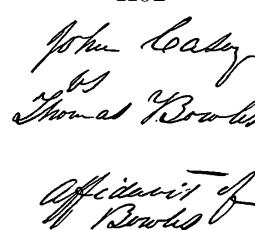 John Casey
vs
Thomas F. Bowles
Affidavit of
Bowles